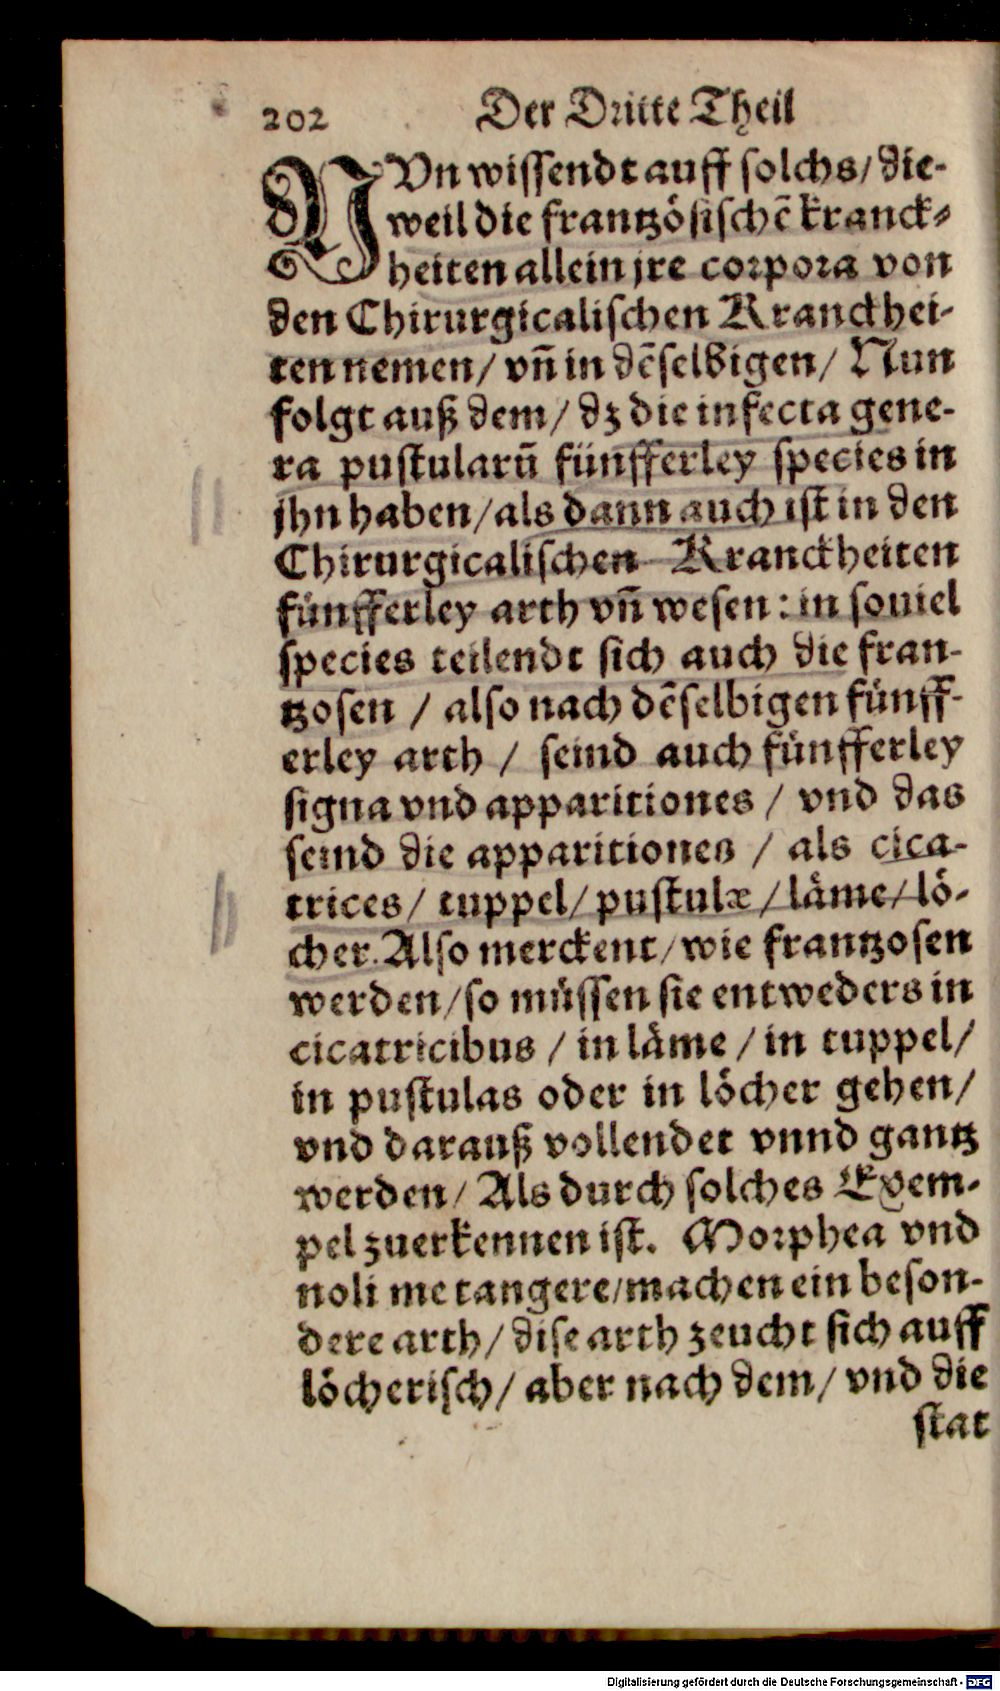 202 Der Dritte Theil
NVn wissendt auff solchs/ die-
weil die frantzösischẽ kranck⸗
heiten allein jre corpora von
den Chirurgicalischen Kranckhei-
ten nemen/ vñ in dẽselbigen/ Nun
folgt auß dem/ dz die infecta gene-
ra pustularũ fünfferley species in
jhn haben/ als dann auch ist in den
Chirurgicalischen Kranckheiten
fünfferley arth vñ wesen: in souiel
species teilendt sich auch die fran-
tzosen / also nach dẽselbigen fünff-
erley arth / seind auch fünfferley
signa vnd apparitiones / vnd das
seind die apparitiones / als cica-
trices/ tuppel/ pustulæ / läme/ lö-
cher. Also merckent/ wie frantzosen
werden/ so müssen sie entweders in
cicatricibus / in läme / in tuppel/
in pustulas oder in löcher gehen/
vnd darauß vollendet vnnd gantz
werden/ Als durch solches Exem-
pel zuerkennen ist. Morphea vnd
noli me tangere/ machen ein beson-
dere arth/ dise arth zeucht sich auff
löcherisch/ aber nach dem/ vnd die
stat
Digitalisierung gefördert durch die Deutsche Forschungsgemeinschaft - DFG